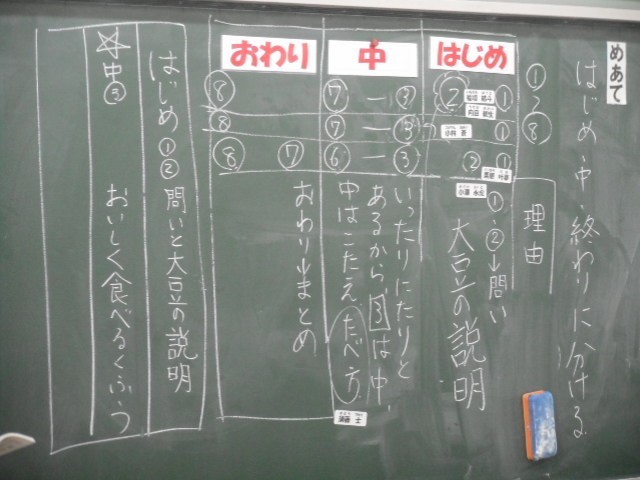 めあて
はじめ・中・終わりに分ける。
①〜⑧
理由
はじめ
② ①
①
② ①
①・②→問い
大豆の説明
中
⑦ー③
⑦ー③
⑥ー③
いったりにたりと
あるから、③は中、
中はこたえ、たべ方
おわり
⑧
⑧
⑧ ⑦
おわり→まとめ
はじめ①② 問いと大豆の説明
中③ おいしく食べるくふう